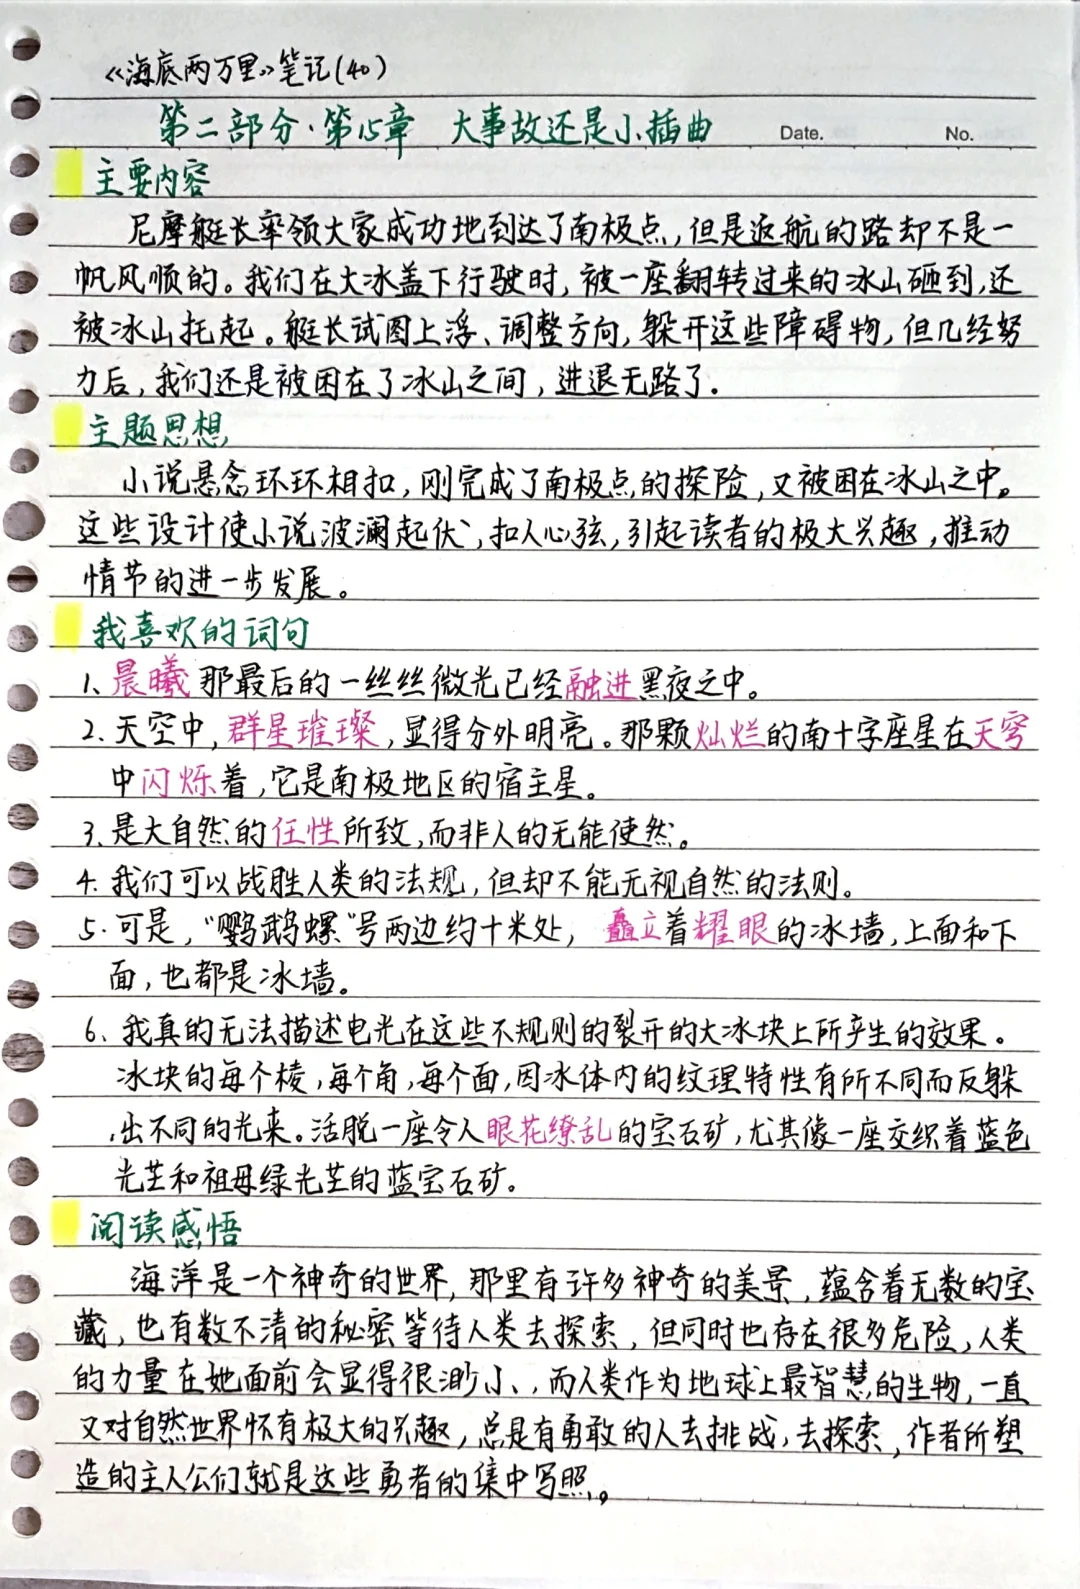 《海底两万里》笔记(40)
第二部分·第15章 大事故还是小插曲 Date. No.
主要内容
尼摩艇长率领大家成功地到达了南极点,但是返航的路却不是一
帆风顺的。我们在大冰盖下行驶时,被一座翻转过来的冰山砸到,还
被冰山托起。艇长试图上浮、调整方向,躲开这些障碍物,但几经努
力后,我们还是被困在了冰山之间,进退无路了.
主题思想
小说悬念环环相扣,刚完成了南极点的探险,又被困在冰山之中。
这些设计使小说波澜起伏,扣人心弦,引起读者的极大兴趣,推动
情节的进一步发展。
我喜欢的词句
1、晨曦那最后的一丝丝微光已经融进黑夜之中。
2.天空中,群星璀璨,显得分外明亮。那颗灿烂的南十字座星在天穹
中闪烁着,它是南极地区的宿主星。
3.是大自然的任性所致,而非人的无能使然。
4.我们可以战胜人类的法规,但却不能无视自然的法则。
5.可是,"鹦鹉螺"号两边约十米处,矗立着耀眼的冰墙,上面和下
面,也都是冰墙。
6、我真的无法描述电光在这些不规则的裂开的大冰块上所产生的效果。
冰块的每个棱,每个角,每个面,因冰体内的纹理特性有所不同而反躲
出不同的光来。活脱一座令人眼花缭乱的宝石矿,尤其像一座交织着蓝色
光芒和祖母绿光芒的蓝宝石矿。
阅读感悟
海洋是一个神奇的世界,那里有许多神奇的美景,蕴含着无数的宝
藏,也有数不清的秘密等待人类去探索,但同时也存在很多危险,人类
的力量在她面前会显得很渺小、,而人类作为地球上最智慧的生物,一直
又对自然世界怀有极大的兴趣,总是有勇敢的人去挑战,去探索,作者所塑
造的主人公们就是这些勇者的集中写照。